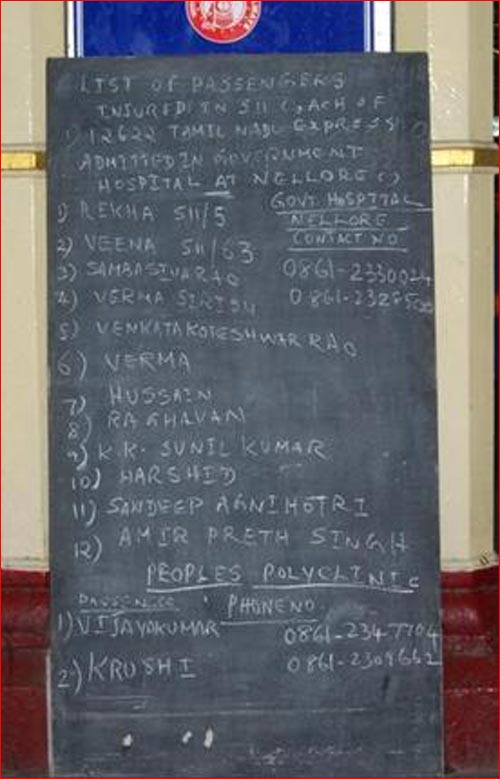 LIST OF PASSENGERS
INJURED IN S11 COACH OF
12622 TAMIL NADU EXPRESS
ADMITTED IN GOVERNMENT
HOSPITAL AT NELLORE
GOVT HOSPITAL
NELLORE
CONTACT NO
0861-2330024
1) REKHA S11/5
2) VEENA S11/63
3) SAMBASIVARAO
4) VERMA SIRISH
5) VENKATAKOTESHWAR RAO
6) VERMA
7) HUSSAIN
8) RAGHAVAN
9) K.K. SUNIL KUMAR
10) HARSHID
11) SANDEEP AGNIHOTRI
12) AMIR PRETH SINGH
PEOPLES POLYCLINIC
PASSENGER PHONE NO.
1) VIJAYAKUMAR 0861-2347704
2) KRUSHI 0861-2309662